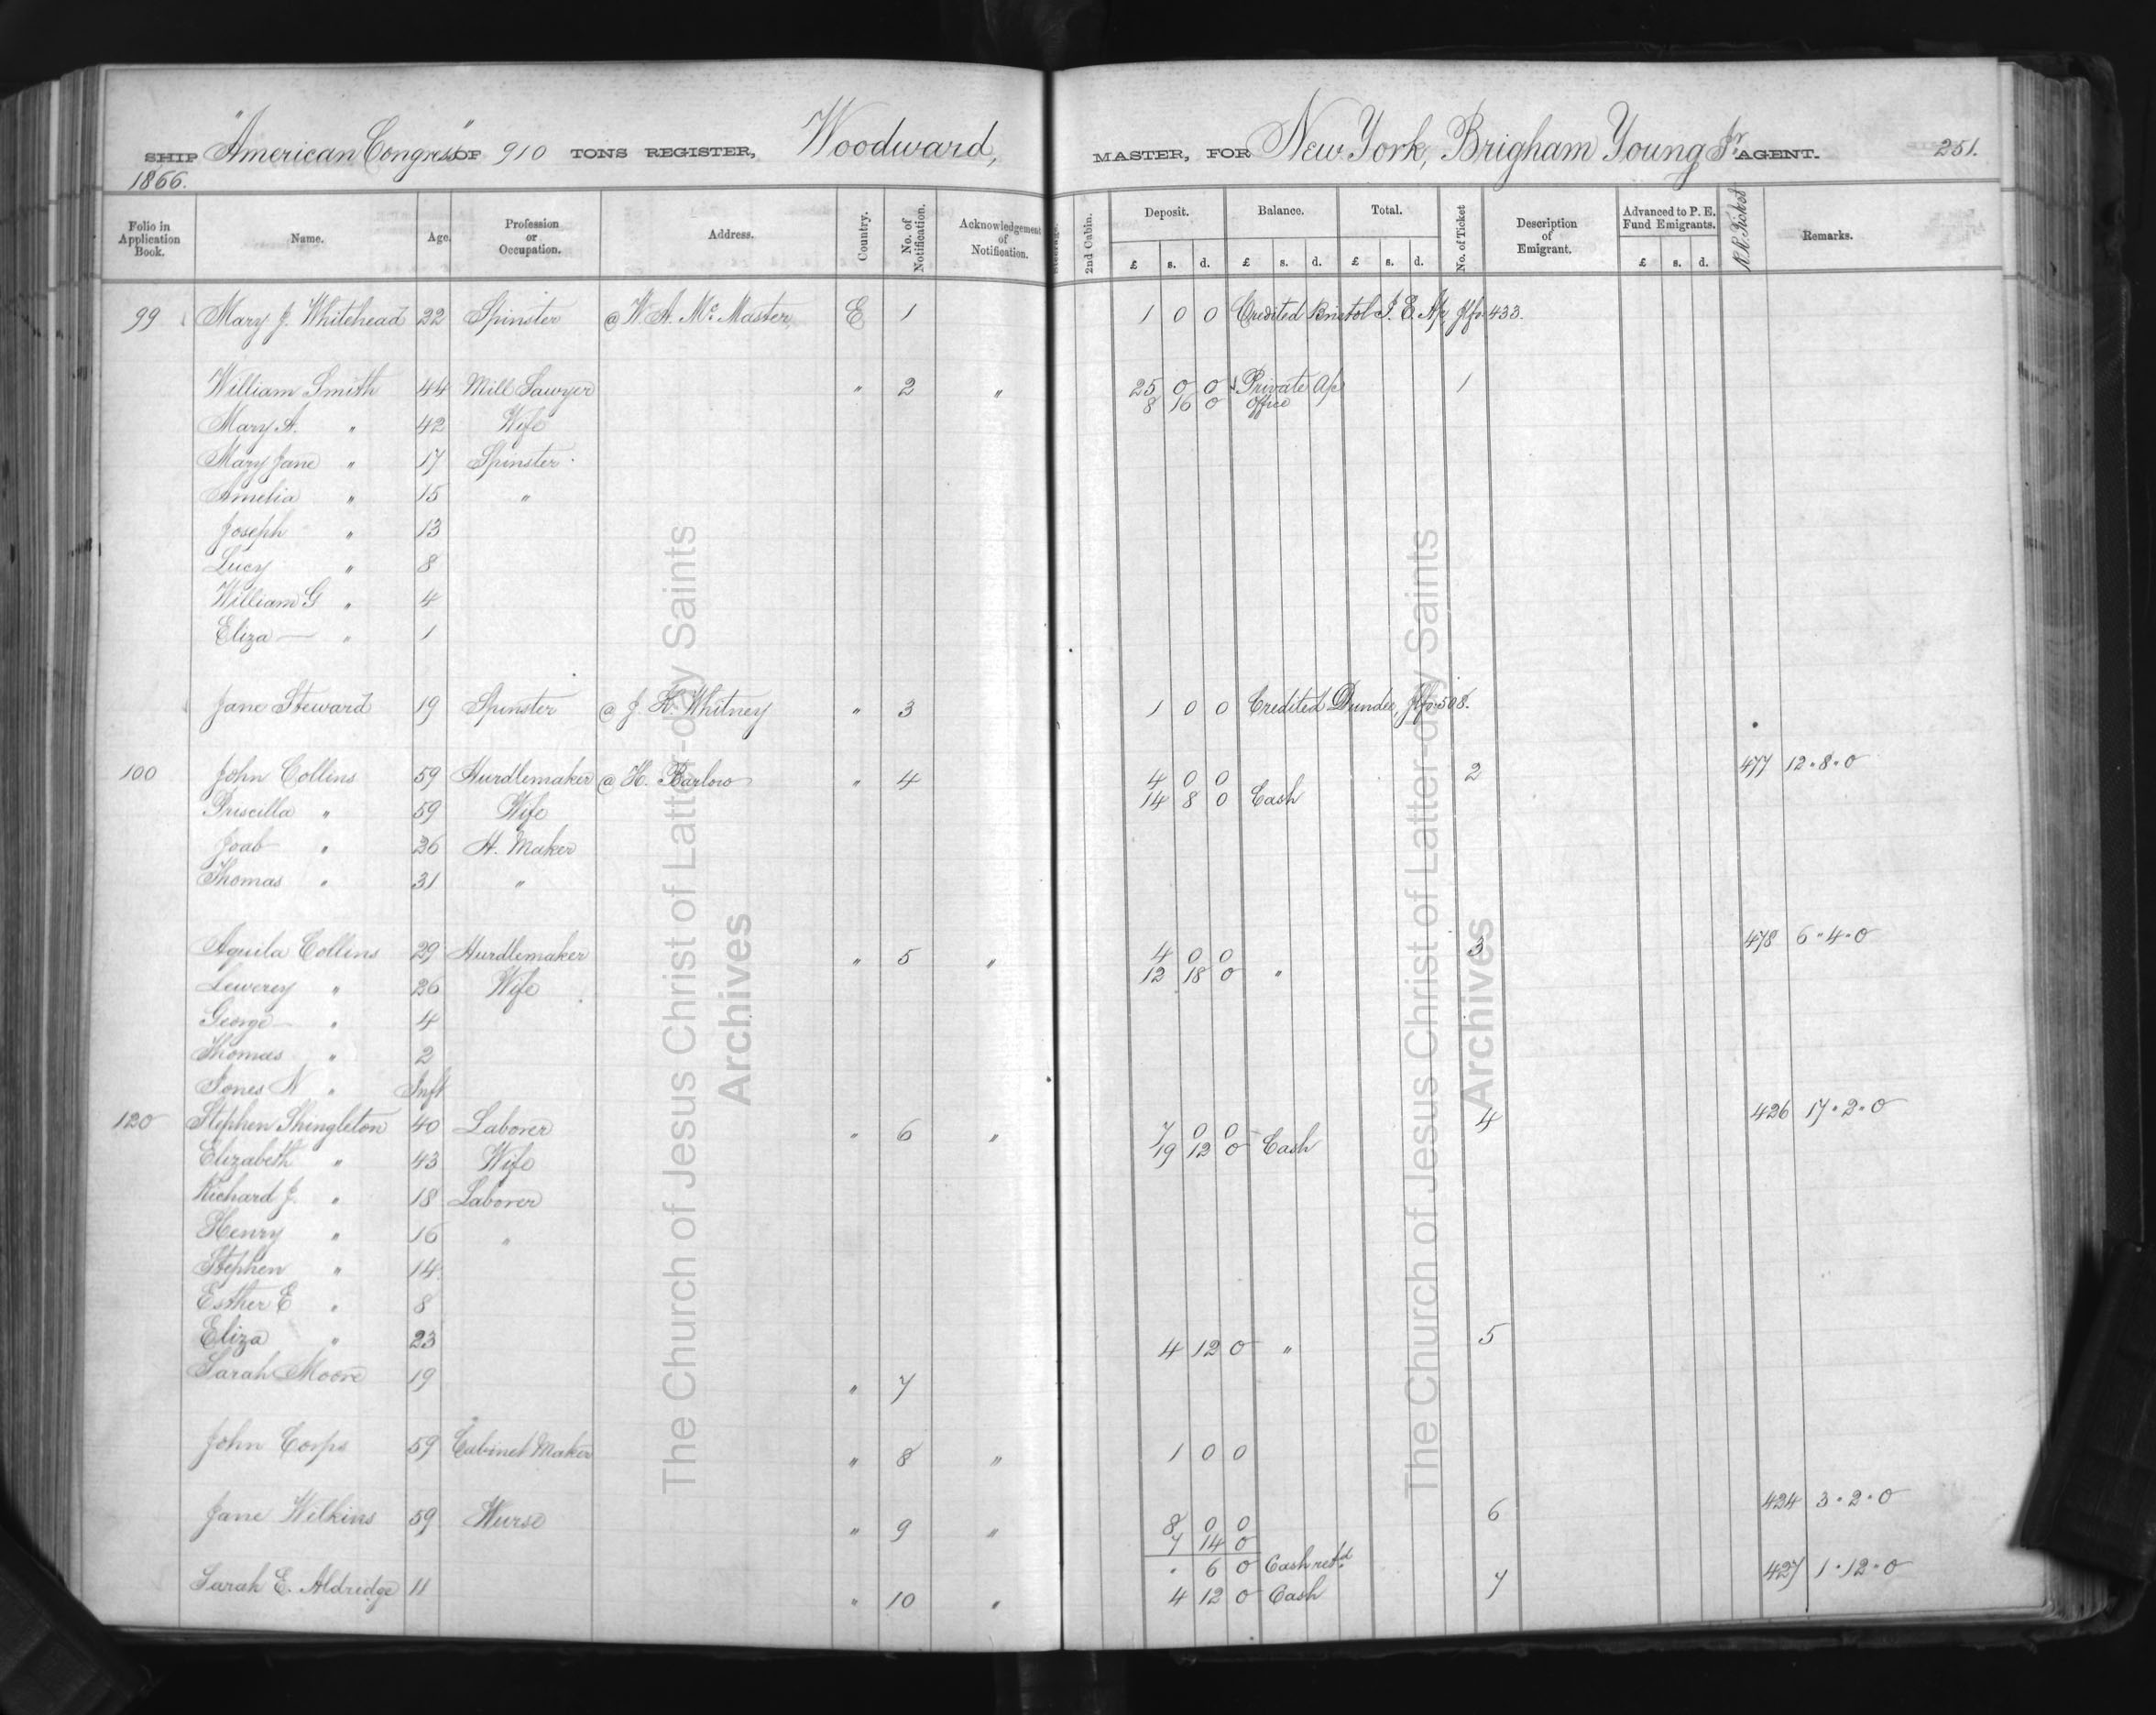 SHIP "American Congress" OF 910 TONS REGISTER, Woodward, MASTER, FOR New York, Brigham Young Jr. AGENT. 251.
1866.
Folio in Application Book. Name. Age. Profession or Occupation. Address. Country. No. of Notification. Acknowledgement of Notification. Steerage. 2nd Cabin. Deposit. £ s. d. Balance. £ s. d. Total. £ s. d. No. of Ticket Description of Emigrant. Advanced to P. E. Fund Emigrants. £ s. d. R.R. Ticket Remarks.
99 Mary J. Whitehead 22 Spinster @ W. A. Mc Master, E 1 1 0 0 Credited Bristol 433.
William Smith 44 Mill Sawyer " 2 " 25 0 0 Private 1
8 16 0 Office
Mary A. " 42 Wife
Mary Jane " 17 Spinster
Amelia " 15 "
Joseph " 13
Lucy " 8
William G " 4
Eliza " 1
Jane Steward 19 Spinster @ J. K. Whitney " 3 1 0 0 Credited Dundee, 508.
100 John Collins 59 Hurdlemaker @ H. Barlow " 4 4 0 0 2 477 12.8.0
14 8 0 Cash
Priscilla " 59 Wife
Joab " 36 H. Maker
Thomas " 31 "
Aquila Collins 29 Hurdlemaker " 5 " 4 0 0 3 478 6.4.0
12 18 0 "
Lewerey " 26 Wife
George " 4
Thomas " 2
Jones N " Inft
120 Stephen Shingleton 40 Laborer " 6 " 7 0 0 4 426 17.2.0
19 12 0 Cash
Elizabeth " 43 Wife
Richard J. " 18 Laborer
Henry " 16 "
Stephen " 14
Esther E " 8
Eliza " 23 4 12 0 " 5
Sarah Moore 19 " 7
John Corps 59 Cabinet Maker " 8 " 1 0 0
Jane Wilkins 59 Nurse " 9 " 8 0 0 6 424 3.2.0
7 14 0
. 6 0 Cash retd.
Sarah E. Aldridge 11 " 10 " 4 12 0 Cash 7 427 1.12.0
The Church of Jesus Christ of Latter-day Saints
Archives
The Church of Jesus Christ of Latter-day Saints
Archives